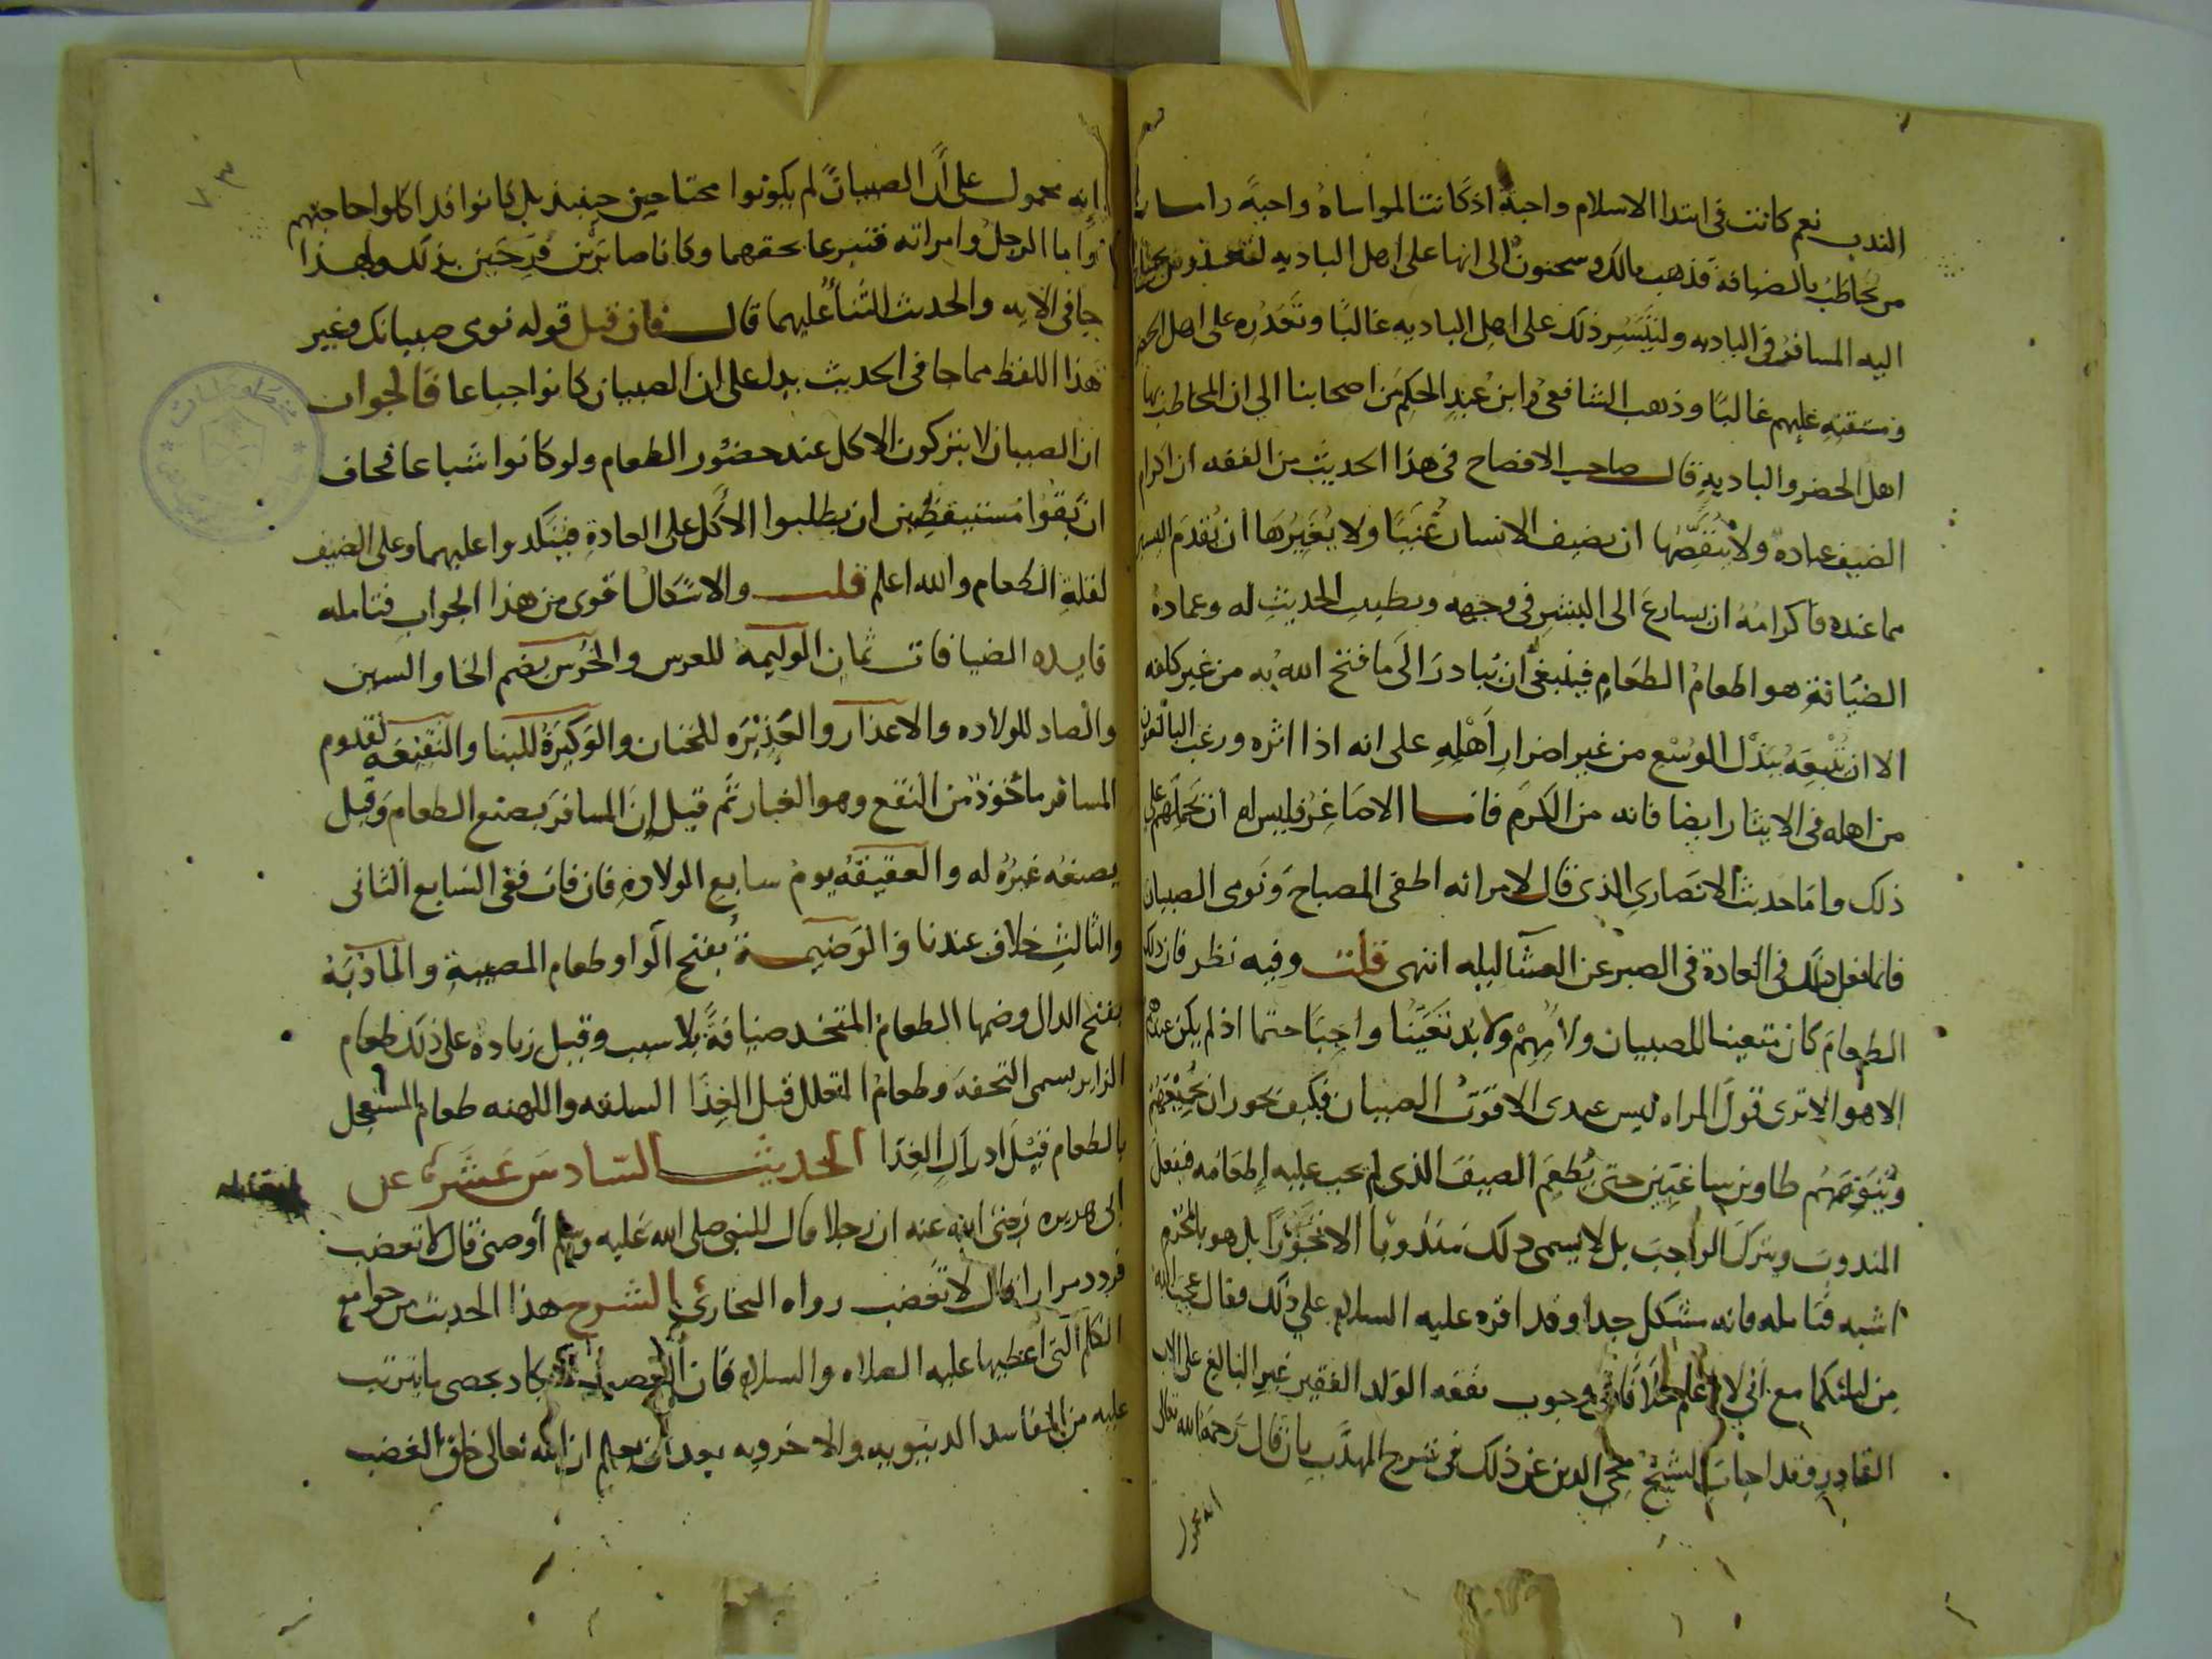 الندب نعم كانت في ابتدا الاسلام واجبة اذ كانت المواساة واجبة واما
من يُخاطَبُ بالضيافة فذهب مالك وسحنون الى انها على اهل الباديه لتعذر ما يحتاج
اليه المسافر في الباديه ولتيسر ذلك على اهل الباديه غالبًا وتعذره على اهل الحضر
ومشقته عليهم غالبًا وذهب الشافعي وابن عبد الحكم من اصحابنا الي ان المخاطب بها
اهل الحضر والبادية قال صاحب الافصاح في هذا الحديث من الفقه ان اكرام
الضيف عبادة ولا ينقصها ان يضيف الانسان غنيًا ولا يغيرها ان يقدم اليسير
مما عنده فاكرامه ان يسارع الى البشر في وجهه ويطيب الحديث له وعمادة
الضيافة هو اطعام الطعام فينبغي ان يبادر الى ما فتح الله به من غير كلفه
الا ان يتبعه ببذل الوسع من غير اضرار اهله على انه اذا اثره ورغب البالغون
من اهله في الايثار ايضا فانه من الكرم فاما الاصاغر فليس له ان يحملهم على
ذلك واما حديث الانصاري الذي قال لامراته اطفى المصباح ونومى الصبيان
فانما فعل ذلك في العادة في الصبر عن العشا ليله انتهى قلت وفيه نظر فان ذلك
الطعام كان متعينا للصبيان ولامهم ولا بد تعينا واجبا حتما اذ لم يكن عندهم
الا هو الا ترى قول المراه ليس عندى الا قوت الصبيان فكيف يجوز ان يجيعهم
وينومهم طاوين ساغبين حتى يُطعم الضيف الذي لم يجب عليه اطعامه فيفعل
المندوب ويترك الواجب بل لا يسمى ذلك مندوبا الا تجوزا بل هو بالمحرم
اشبه فتامله فانه مشكل جدا وقد اقره عليه السلام علي ذلك فقال عجب الله
من ليلتكما مع اني لا اعلم خلافا في وجوب نفقه الولد الفقير غير البالغ على الاب
القادر وقد اجاب الشيخ محي الدين عن ذلك في شرح المهذب بان قال رحمه الله تعالى
انه محمول
٧٣
انه محمول على ان الصبيان لم يكونوا محتاجين حينيذ بل كانوا قد اكلوا حاجتهم
واما الرجل وامراته فتبرعا بحقهما وكانا صابرين فرحين بذلك ولهذا
جا في الايه والحديث الثنا عليهما قال فان قيل قوله نومى صبيانك وغير
هذا اللفظ مما جا في الحديث يدل على ان الصبيان كانوا جياعا فالجواب
ان الصبيان لا يتركون الاكل عند حضور الطعام ولو كانوا شباعا فخاف
ان بقوا مستيقظين ان يطلبوا الاكل على العادة فينكدوا عليهما وعلى الضيف
لقلة الطعام والله اعلم قلت والاشكال اقوى من هذا الجواب فتامله
فايده الضيافات ثمان الوليمة للعرس والخُرس بضم الخا والسين
والصاد للولاده والاعذار والعذيره للختان والوكيرة للبنا والنقيعه لقدوم
المسافر ماخوذة من النقع وهو الغبار ثم قيل ان المسافر يصنع الطعام وقيل
يصنعه غيره له والعقيقه يوم سابع الولادة فان فات ففى السابع الثانى
والثالث خلاف عندنا والوضيمة بفتح الواو طعام المصيبة والمادبة
بفتح الدال وضمها الطعام المتخذ ضيافة بلا سبب وقيل زيادة على ذلك طعام
الزاير يسمى التحفه وطعام المتعلل قبل الغذا السلفه واللهنه طعام المستعجل
بالطعام قبل ادراك الغذا الحديث السادس عشر عن
ابي هريره رضي الله عنه ان رجلا قال للنبي صلى الله عليه وسلم أوصني قال لا تغضب
فردد مرارا قال لا تغضب رواه البخاري الشرح هذا الحديث من جوامع
الكلم التى اعطيها عليه الصلاه والسلام فان الغضب لا يكاد يحصى ما يترتب
عليه من المفاسد الدنيويه والاخرويه بعد ان يعلم ان الله تعالى خلق الغضب